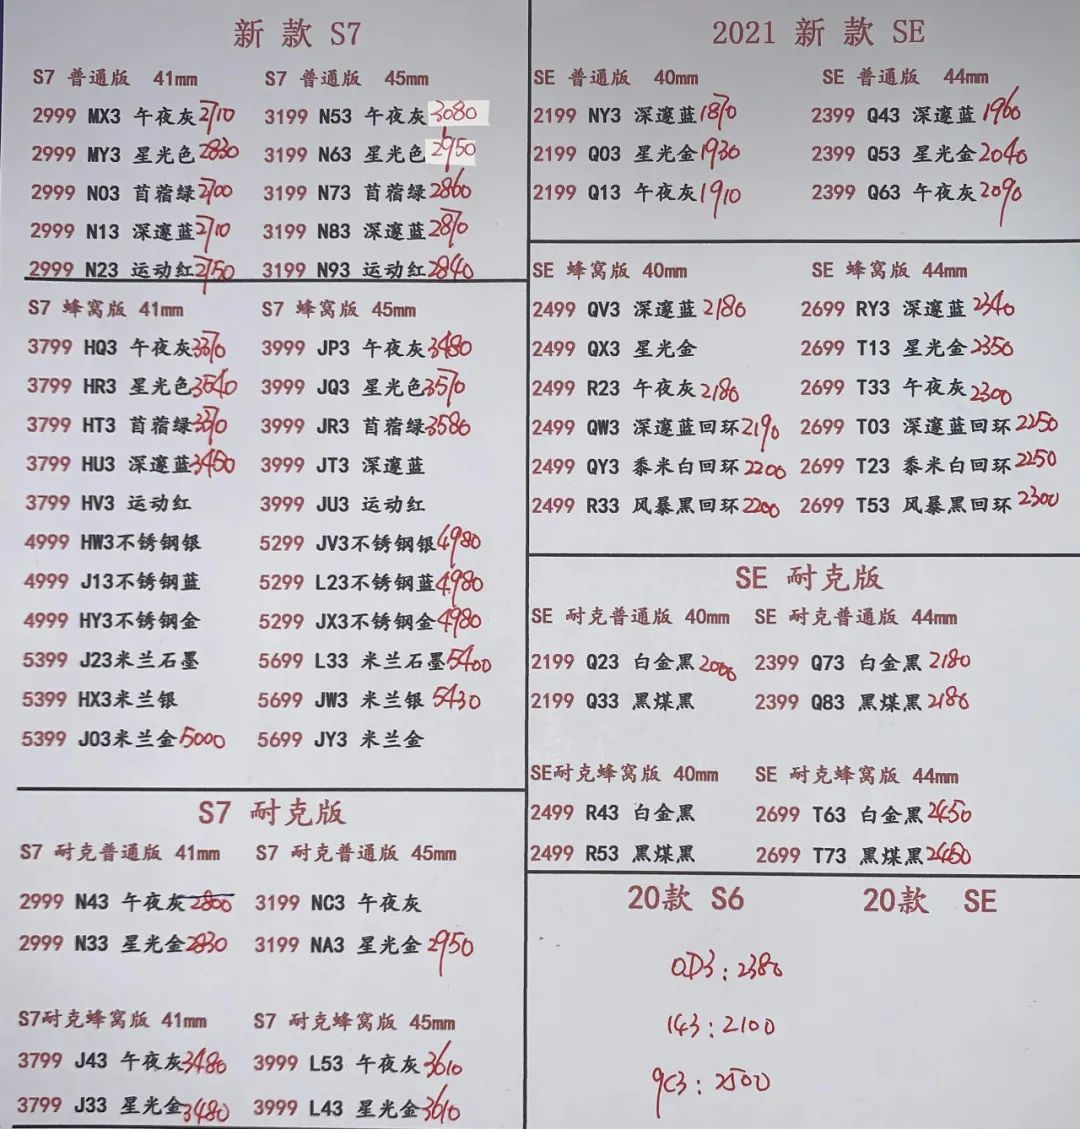 新 款 S7
S7 普通版 41mm
S7 普通版 45mm
2999 MX3 午夜灰 2710
3199 N53 午夜灰 3080
2999 MY3 星光色 2830
3199 N63 星光色 2950
2999 N03 苜蓿绿 2700
3199 N73 苜蓿绿 2860
2999 N13 深邃蓝 2710
3199 N83 深邃蓝 2870
2999 N23 运动红 2750
3199 N93 运动红 2840
S7 蜂窝版 41mm
S7 蜂窝版 45mm
3799 HQ3 午夜灰
3999 JP3 午夜灰 3480
3799 HR3 星光色 3540
3999 JQ3 星光色 3570
3799 HT3 苜蓿绿
3999 JR3 苜蓿绿 3580
3799 HU3 深邃蓝 3450
3999 JT3 深邃蓝
3799 HV3 运动红
3999 JU3 运动红
4999 HW3不锈钢银
5299 JV3不锈钢银 4980
4999 J13不锈钢蓝
5299 L23不锈钢蓝 4980
4999 HY3不锈钢金
5299 JX3不锈钢金 4980
5399 J23米兰石墨
5699 L33 米兰石墨 5400
5399 HX3米兰银
5699 JW3 米兰银 5430
5399 J03米兰金 5000
5699 JY3 米兰金
S7 耐克版
S7 耐克普通版 41mm
S7 耐克普通版 45mm
2999 N43 午夜灰 2800
3199 NC3 午夜灰
2999 N33 星光金 2830
3199 NA3 星光金 2950
S7耐克蜂窝版 41mm
S7 耐克蜂窝版 45mm
3799 J43 午夜灰 3480
3999 L53 午夜灰 3610
3799 J33 星光金 3480
3999 L43 星光金 3610
2021 新 款 SE
SE 普通版 40mm
SE 普通版 44mm
2199 NY3 深邃蓝 1870
2399 Q43 深邃蓝 1960
2199 Q03 星光金 1930
2399 Q53 星光金 2040
2199 Q13 午夜灰 1910
2399 Q63 午夜灰 2090
SE 蜂窝版 40mm
SE 蜂窝版 44mm
2499 QV3 深邃蓝 2180
2699 RY3 深邃蓝 2340
2499 QX3 星光金
2699 T13 星光金 2350
2499 R23 午夜灰 2180
2699 T33 午夜灰 2300
2499 QW3 深邃蓝回环 2190
2699 T03 深邃蓝回环 2250
2499 QY3 黍米白回环 2200
2699 T23 黍米白回环 2250
2499 R33 风暴黑回环 2200
2699 T53 风暴黑回环 2300
SE 耐克版
SE 耐克普通版 40mm
SE 耐克普通版 44mm
2199 Q23 白金黑 2000
2399 Q73 白金黑 2180
2199 Q33 黑煤黑
2399 Q83 黑煤黑 2180
SE耐克蜂窝版 40mm
SE 耐克蜂窝版 44mm
2499 R43 白金黑
2699 T63 白金黑 2450
2499 R53 黑煤黑
2699 T73 黑煤黑 2450
20款 S6
20款 SE
QD3：2380
143：2100
9C3：2500